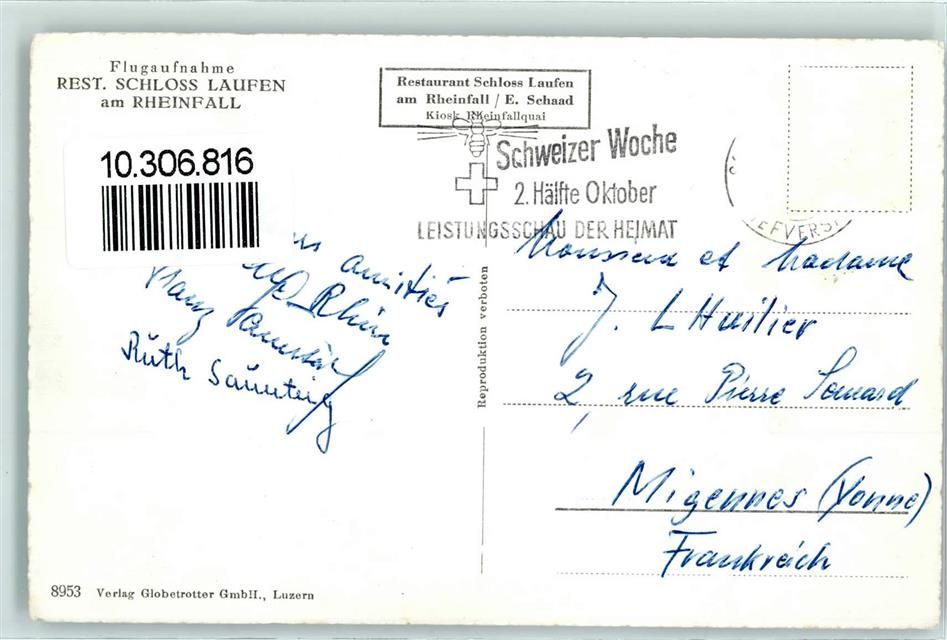 Flugaufnahme
REST. SCHLOSS LAUFEN
am RHEINFALL
10.306.816
Restaurant Schloss Laufen
am Rheinfall / E. Schaad
Kiosk Rheinfallquai
Schweizer Woche
2. Hälfte Oktober
LEISTUNGSSCHAU DER HEIMAT
EFVERS
amitiés
Rhin
Ruth
Reproduktion verboten
Monsieur et Madame
J. L Huilier
2, rue Pierre Semard
Migennes (Yonne)
Frankreich
8953 Verlag Globetrotter GmbH., Luzern